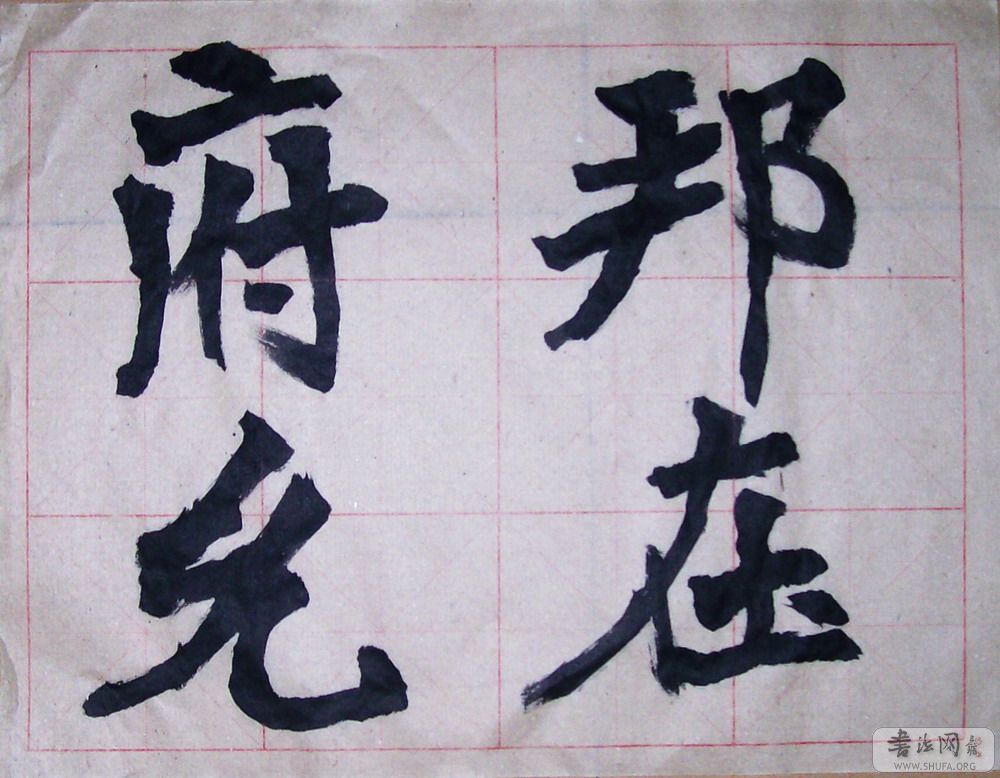 邦在
府免
書法网
WWW.SHUFA.ORG